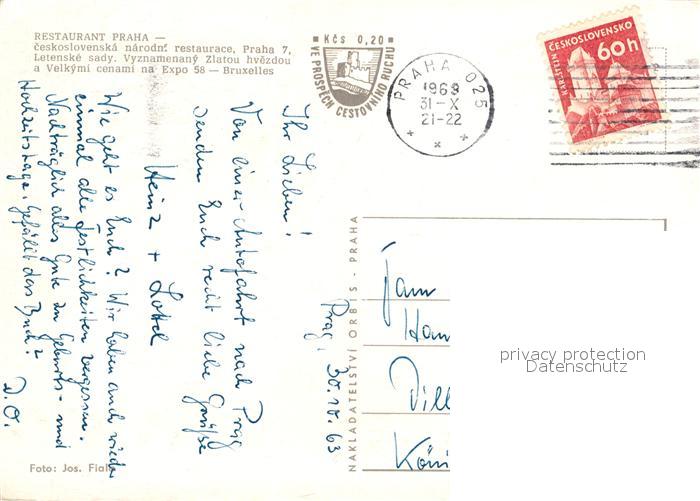 RESTAURANT PRAHA —
československá národní restaurace, Praha 7,
Letenské sady. Vyznamenaný Zlatou hvězdou
a Velkými cenami na Expo 58 — Bruxelles
Kčs 0,20
VE PROSPĚCH CESTOVNÍHO RUCHU
PRAHA 025
1963
31-X
21-22
ČESKOSLOVENSKO
60h
KARLŠTEJN
Prag, 30.10.63
Ihr Lieben!
Von einer Autofahrt nach Prag
senden Euch recht liebe Grüße
Heinz + Lottel
Wie geht es Euch? Wir haben auch wieder
einmal alle Festlichkeiten vergessen.
Nachträglich alles Gute zu Geburts- und
Hochzeitstage. Gefällt das Buch?
D.O.
NAKLADATELSTVÍ ORBIS - PRAHA
Fam
Han
Dill
Köni
privacy protection
Datenschutz
Foto: Jos. Fiala